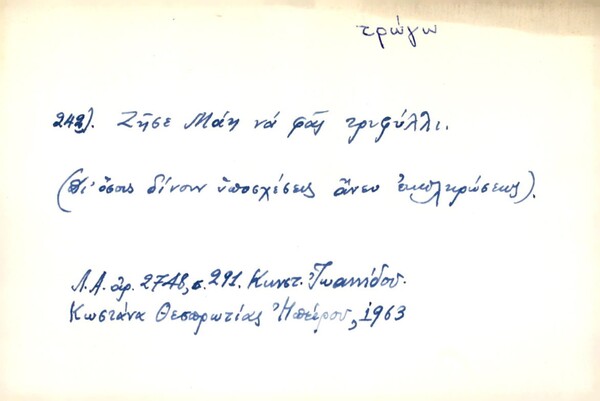 τρώγω
242). Ζῆσε Μάη νά φᾶς τριφύλλι.
(Δι' ὅσους δίνουν ὑποσχέσεις ἄνευ ἐκπληρώσεως).
Λ.Α. ἀρ. 2748, σ. 291. Κωνστ. Ἰωαννίδου.
Κωστάνα Θεσπρωτίας Ἠπείρου, 1963